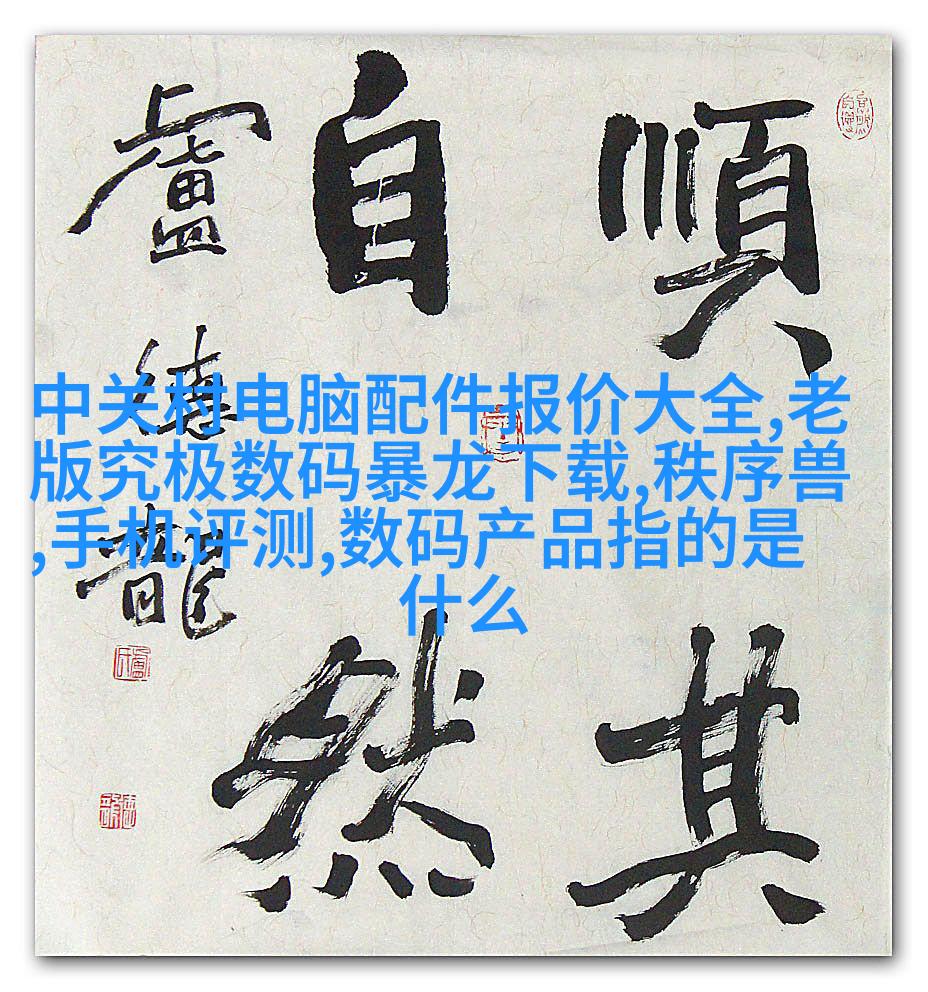 順其
自然
盧德龍
中关村电脑配件报价大全,老
版究极数码暴龙下载,秩序兽
,手机评测,数码产品指的是
什么